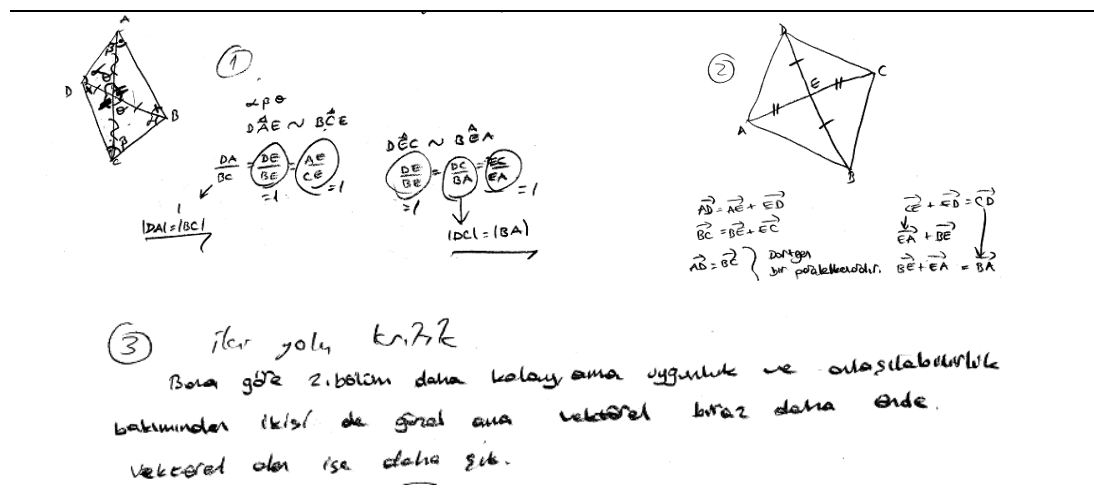 ①
A
β
α
D
θ
θ
B
β
C
α β θ
DAE ~ BCE
DA/BC = DE/BE = AE/CE
=1 =1
|DA| = |BC|
DEC ~ BEA
DE/BE = DC/BA = EC/EA
=1 =1
|DC| = |BA|
②
D
C
E
A
B
AD = AE + ED
BC = BE + EC
AD = BC } Dörtgen
bir paralelkenardır.
CE + ED = CD
EA + BE
BE + EA = BA
③ iki yolu kritik
Bana göre 2. bölüm daha kolay ama uygunluk ve anlaşılabilirlik
bakımından ikisi de güzel ama vektörel biraz daha önde.
Vektörel olan ise daha şık.